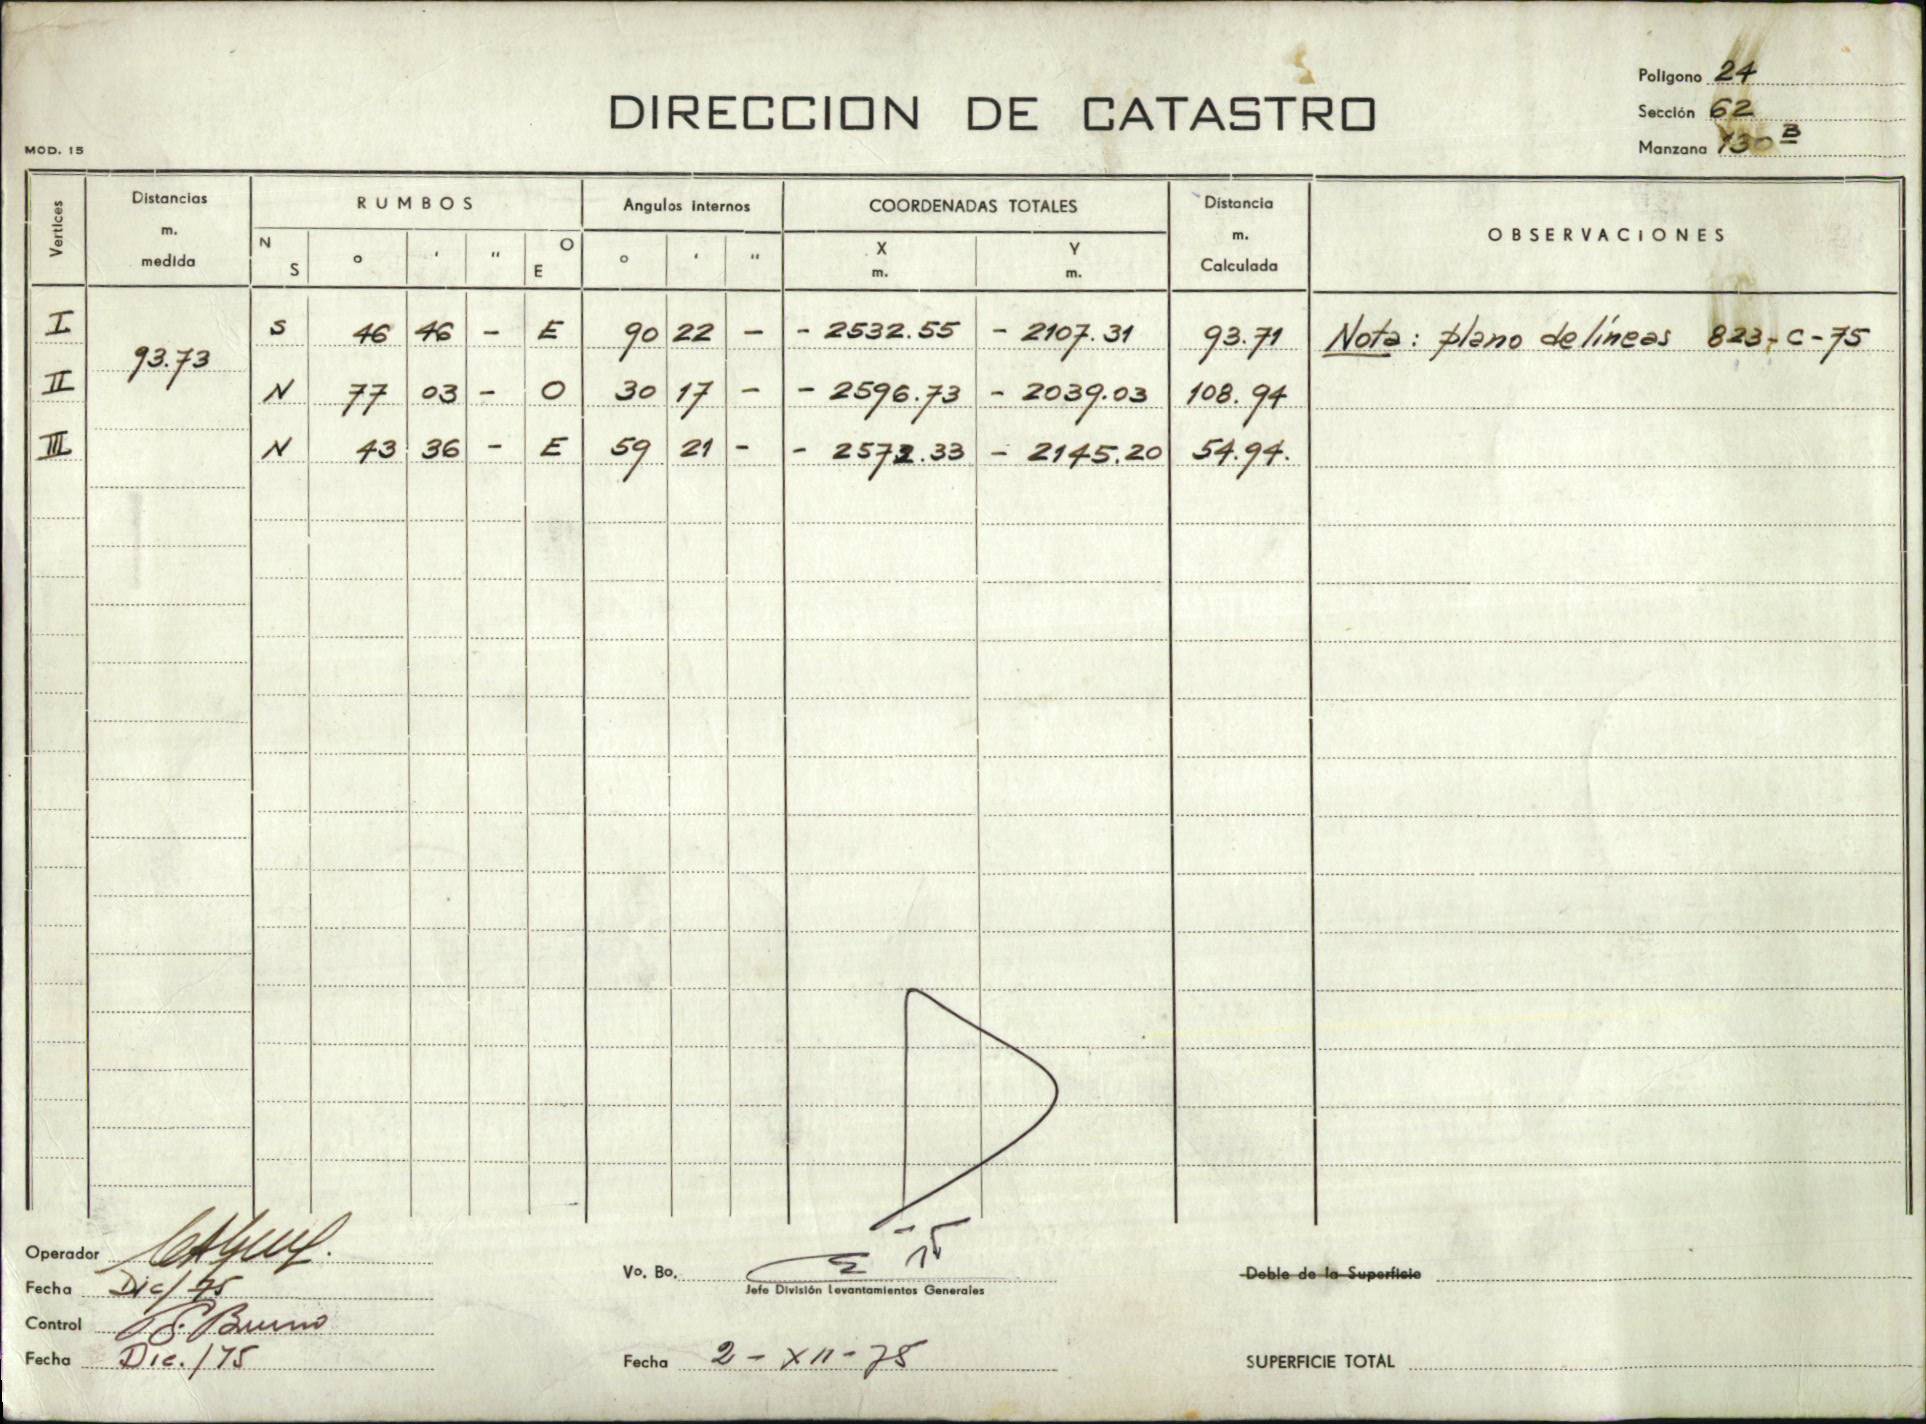 Poligono 24
DIRECCION DE CATASTRO
Sección 62
MOD. 15
Manzana 130 B
Vertices Distancias m. medida RUMBOS Angulos internos COORDENADAS TOTALES Distancia m. Calculada OBSERVACIONES
N S ° ' " O E ° ' " X m. Y m.
I S 46 46 - E 90 22 - - 2532.55 - 2107.31 93.71 Nota: plano de líneas 823-C-75
93.73
II N 77 03 - O 30 17 - - 2596.73 - 2039.03 108.94
III N 43 36 - E 59 21 - - 2572.33 - 2145.20 54.94.
Operador
Vo. Bo. Doble de la Superficie
Fecha Dic/75 Jefe División Levantamientos Generales
Control Bruno
Fecha Dic./75 Fecha 2-XII-75 SUPERFICIE TOTAL